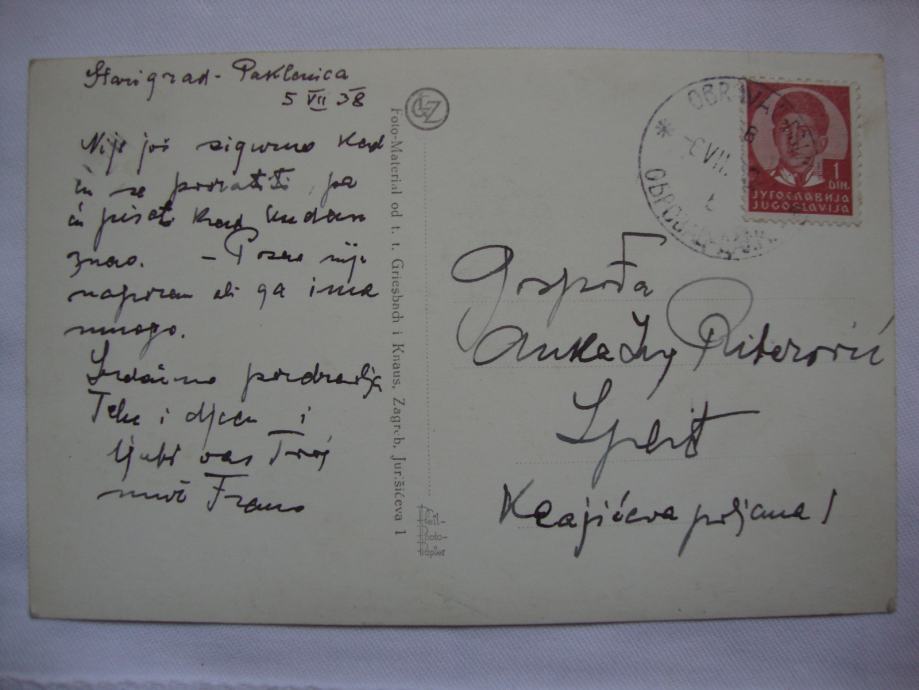 Starigrad - Paklenica
5 VII 38
Nije još sigurno kad
ću se povratiti, pa
ću pisati kad budem
znao. - Posao nije
naporan ali ga ima
mnogo.
Srdačno pozdravlja
Tebe i djecu i
ljubi vas Tvoj
muž Frano
Foto-Material od t. t. Griesbach i Knaus, Zagreb, Jurišićeva 1
GZ
1
DIN.
ЈУГОСЛАВИЈА
JUGOSLAVIJA
Gospođa
Anka
Split